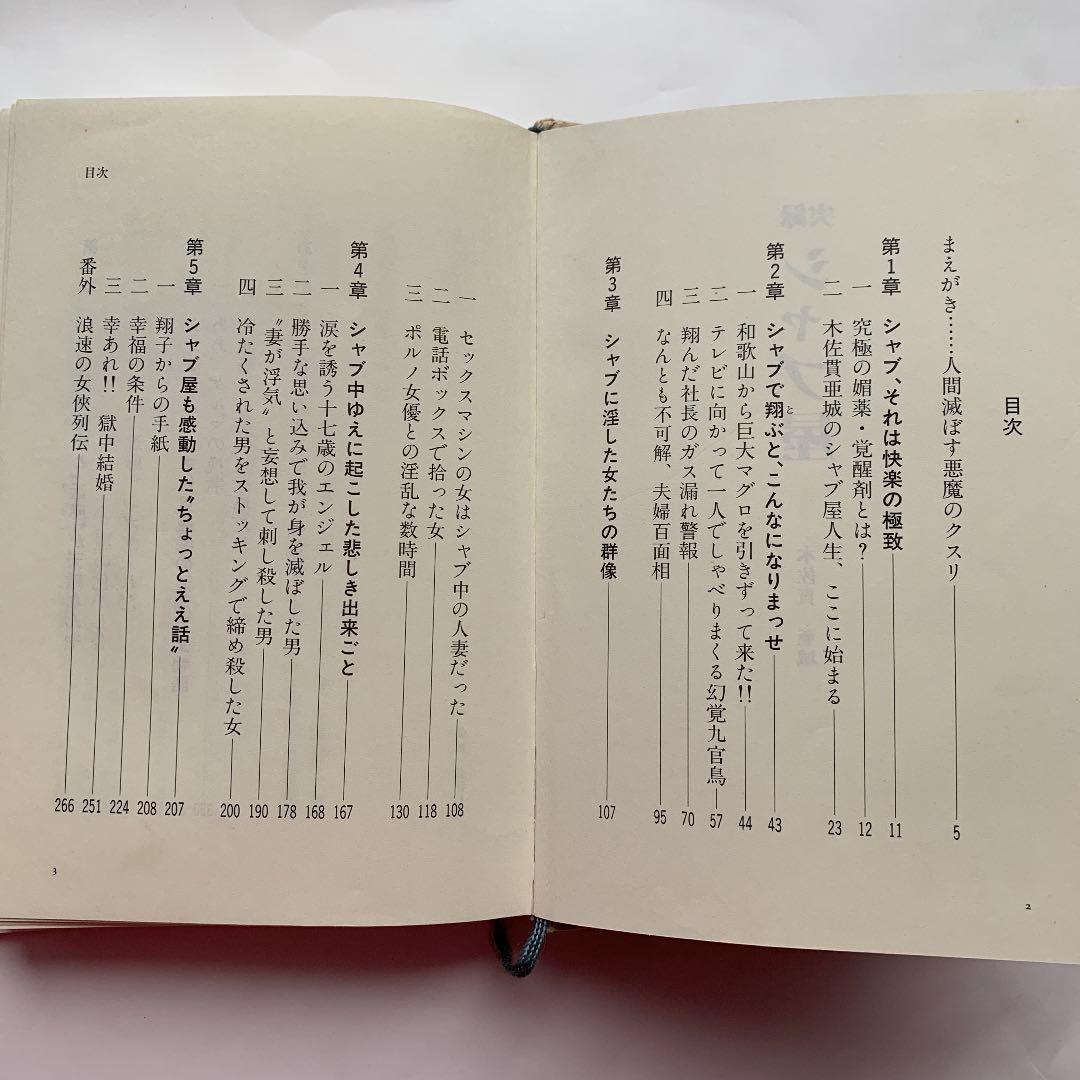 目次
まえがき……人間滅ぼす悪魔のクスリ 5
第1章 シャブ、それは快楽の極致 11
一 究極の媚薬・覚醒剤とは? 12
二 木佐貫亜城のシャブ屋人生、ここに始まる 23
第2章 シャブで翔ぶと、こんなになりまっせ 43
と
一 和歌山から巨大マグロを引きずって来た!! 44
二 テレビに向かって一人でしゃべりまくる幻覚九官鳥 57
三 翔んだ社長のガス漏れ警報 70
四 なんとも不可解、夫婦百面相 95
第3章 シャブに淫した女たちの群像 107
2
一 セックスマシンの女はシャブ中の人妻だった 108
二 電話ボックスで拾った女 118
三 ポルノ女優との淫乱な数時間 130
第4章 シャブ中ゆえに起こした悲しき出来ごと 167
一 涙を誘う十七歳のエンジェル 168
二 勝手な思い込みで我が身を滅ぼした男 178
三 〝妻が浮気〟と妄想して刺し殺した男 190
四 冷たくされた男をストッキングで締め殺した女 200
第5章 シャブ屋も感動した〝ちょっとええ話〟 207
一 翔子からの手紙 208
二 幸福の条件 224
三 幸あれ!! 獄中結婚 251
番外 浪速の女俠列伝 266
目次
3
実録
シャブ屋
木佐貫 亜城